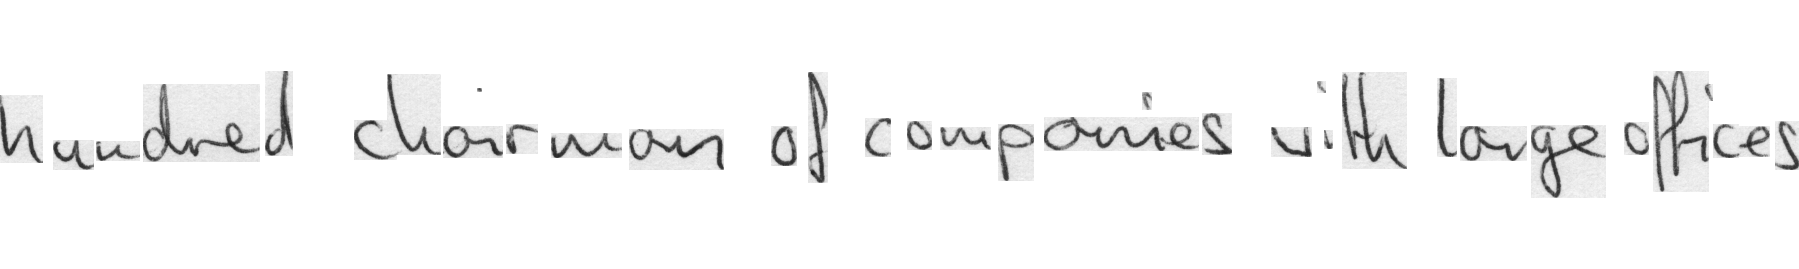 hundred chairman of companies with large offices